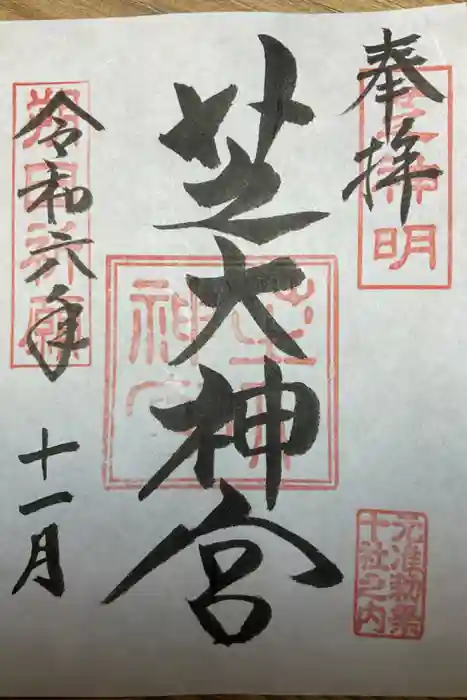 奉拝
芝神明
元准勅祭
十社之内
芝大神宮
令和六年
十一月
朔日祈願